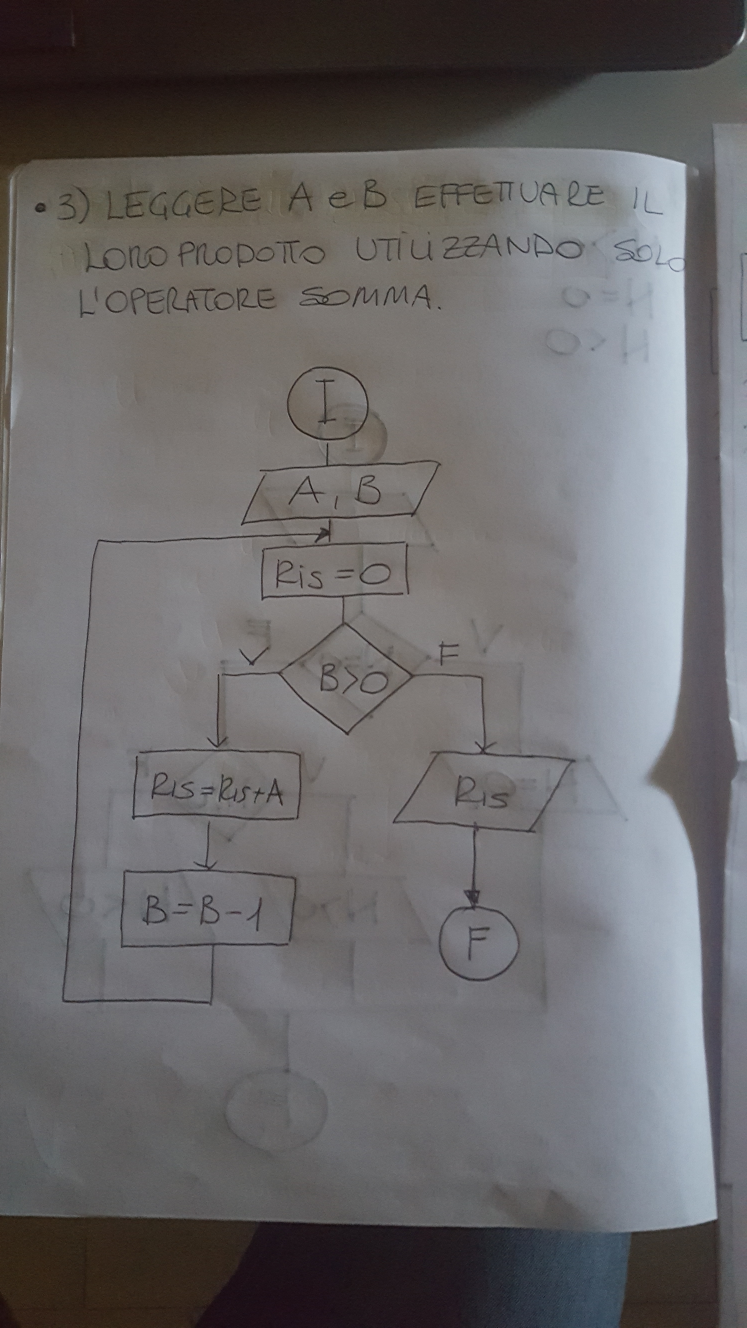 • 3) LEGGERE A e B EFFETTUARE IL
LORO PRODOTTO UTILIZZANDO SOLO
L'OPERATORE SOMMA.
I
A, B
Ris = 0
B>0
V
F
Ris=Ris+A
Ris
B=B-1
F